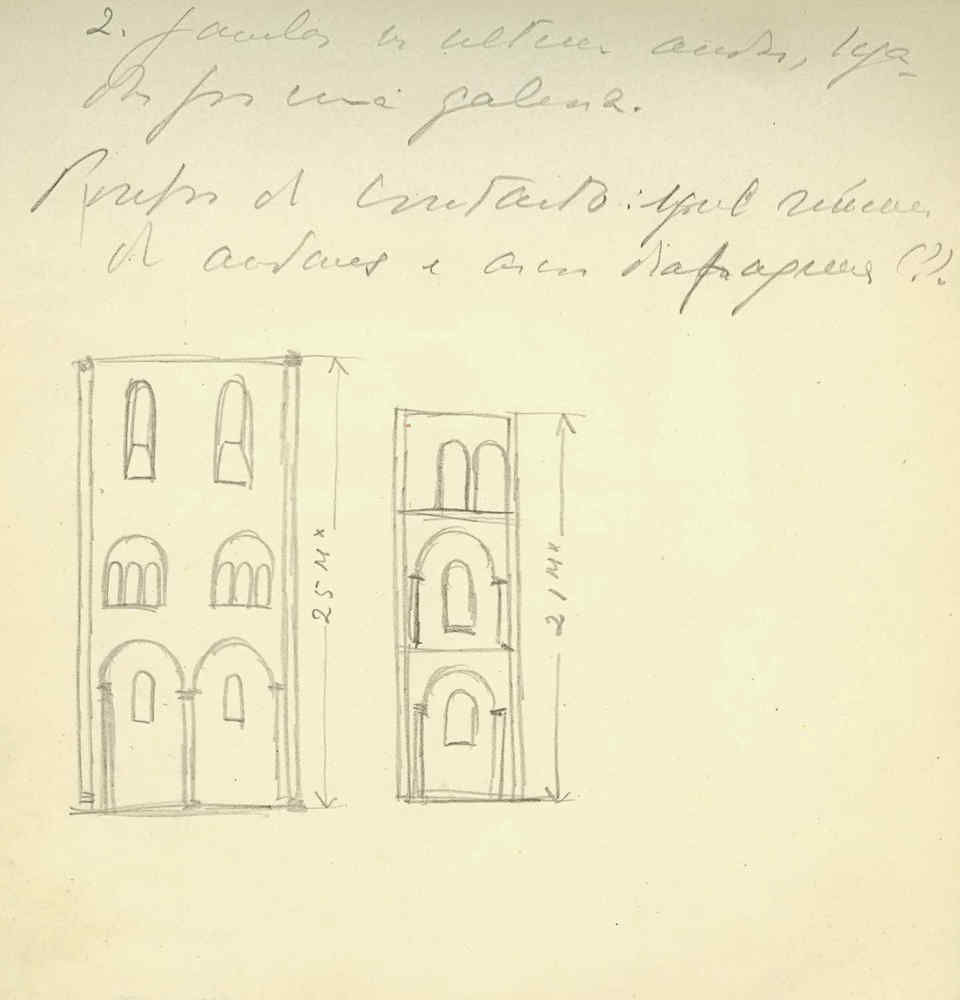 2. janelas no ultimo andar, liga-
das por uma galeria.
Pontos de contacto: igual número
de andares e arcos diafragmas (?).
25 Mx
21 Mx